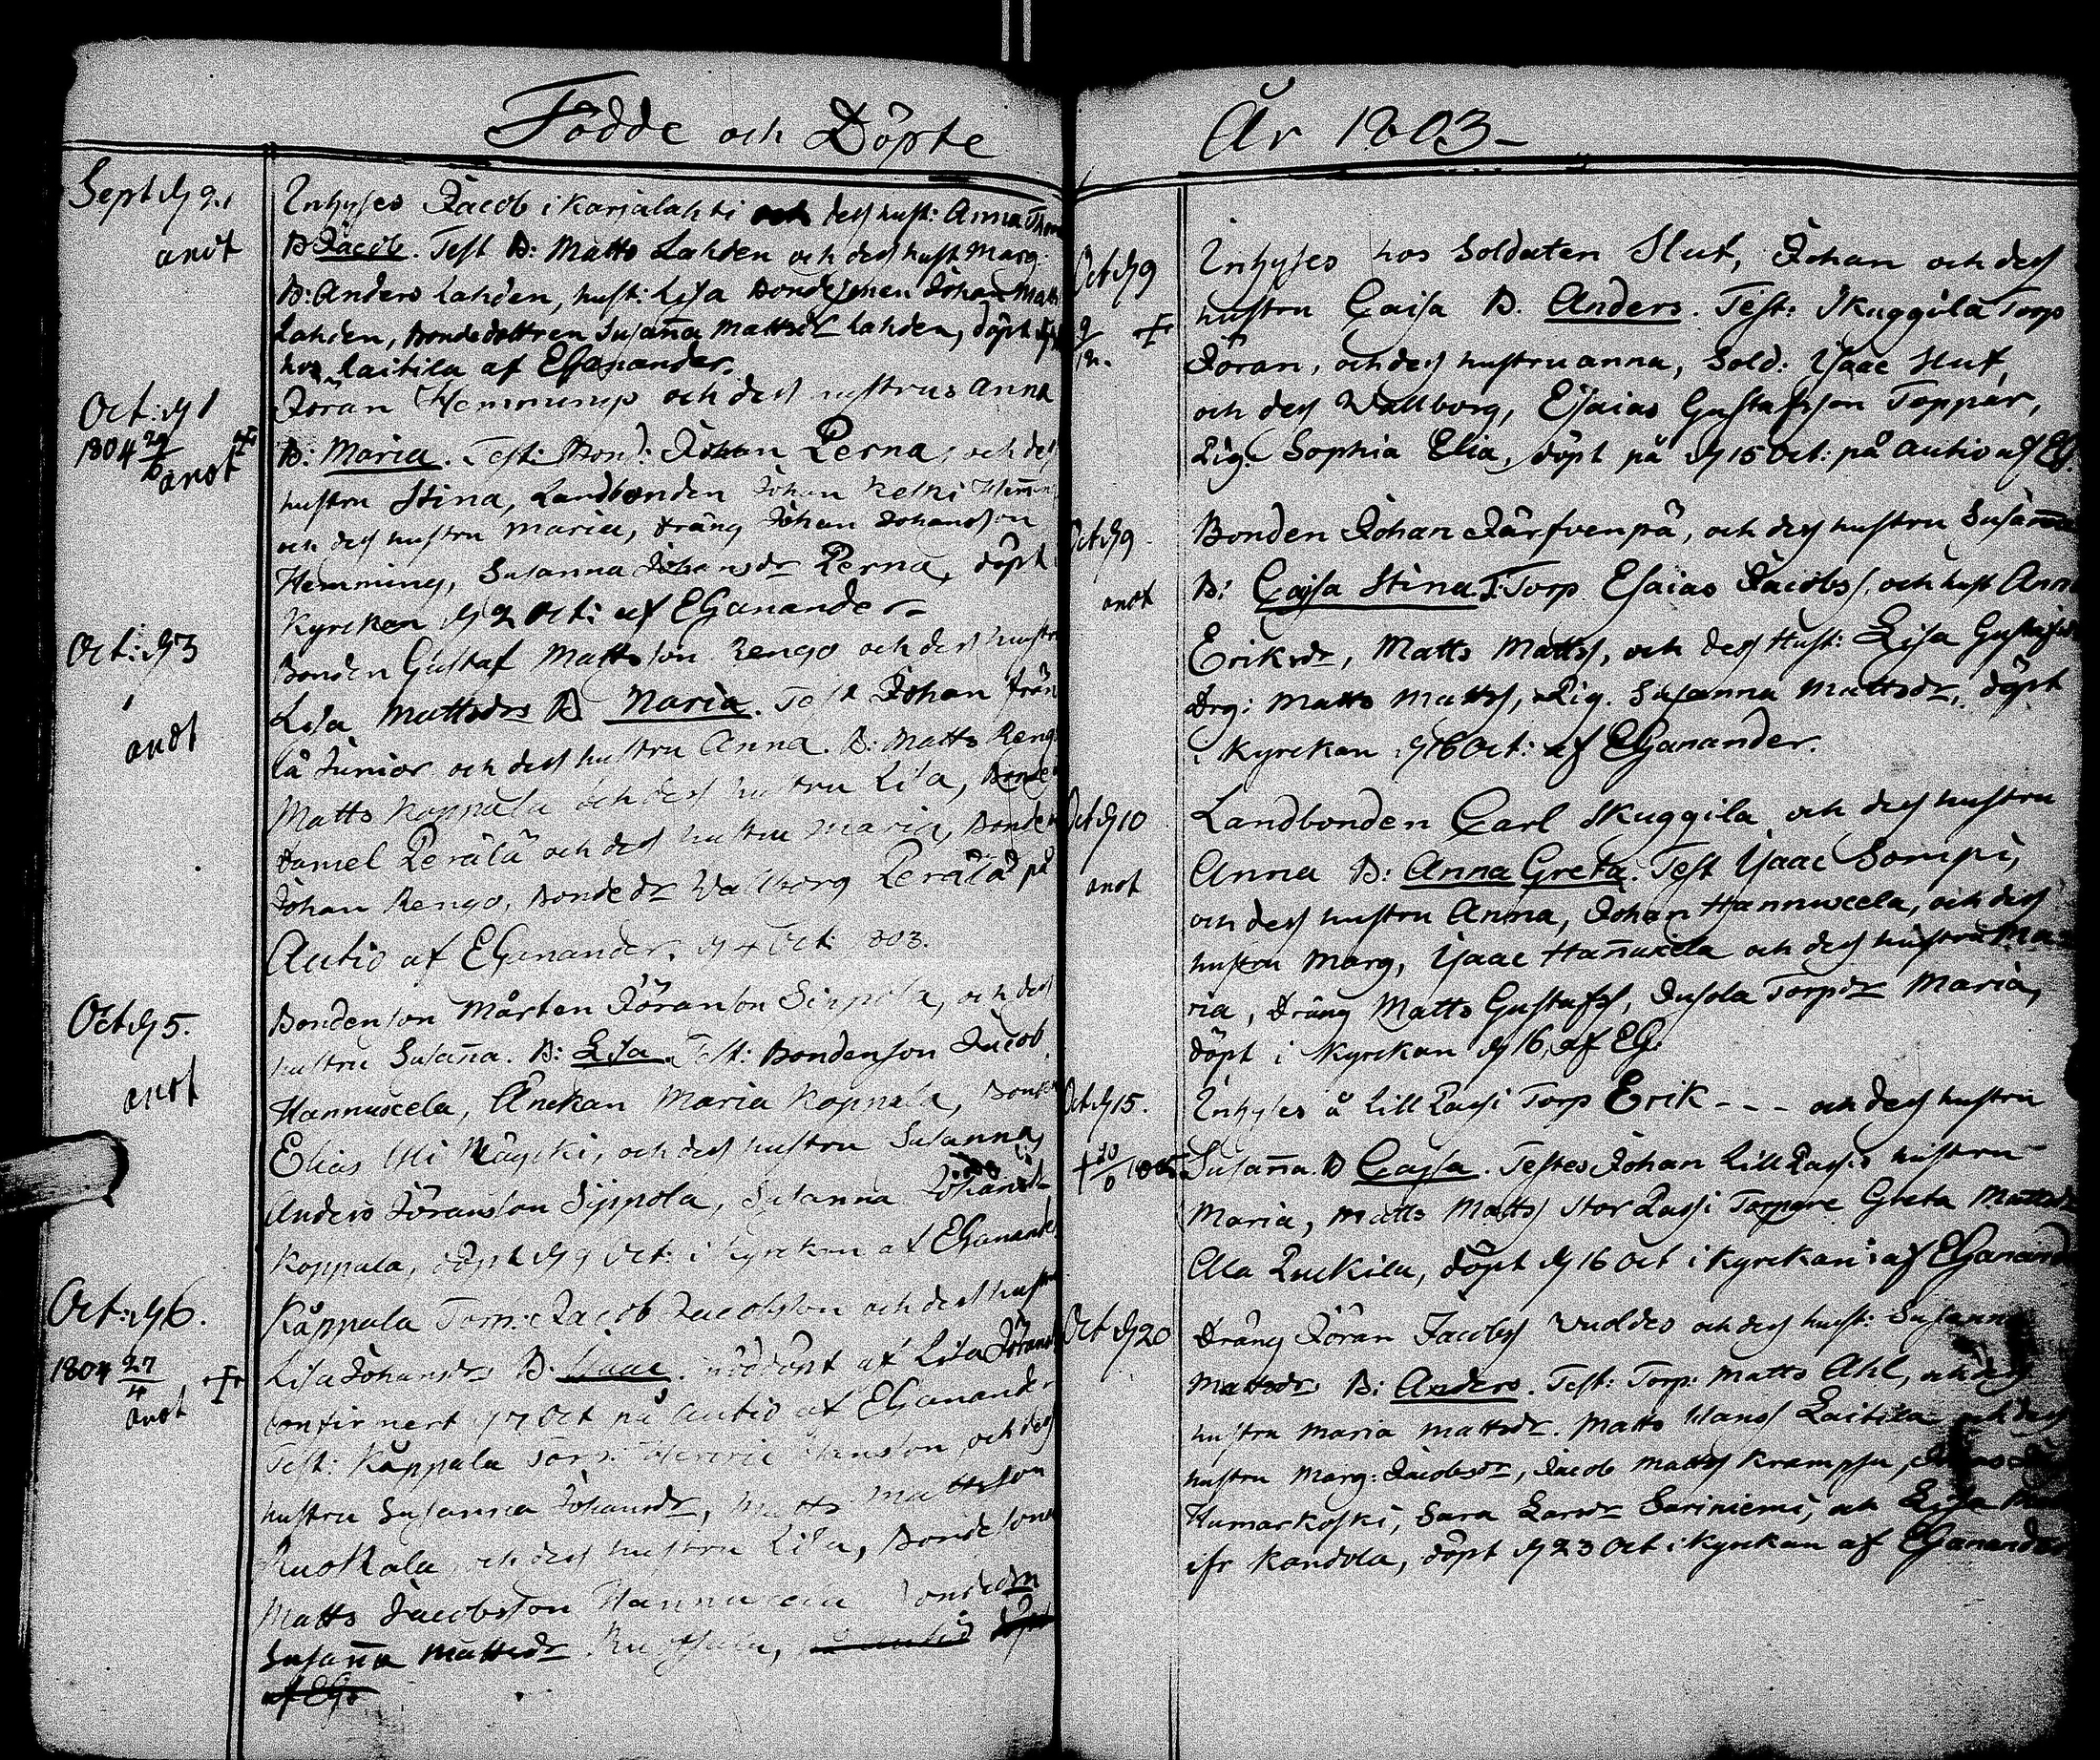 Födde och Döpte
Sept. d. 9.
anot
Inhyses Jacob i Karjalahti och dess hust: Anna
B. Jacob. Test B: Matts Lahden och dess hust Marg.
B: Anders Lahden, hust: Lisa Bondesonen Johan Matts
Lahden, Bondedottren Susan̄a Mattsdr Lahden, döpt
hos Laitila af EGanander.
Oct: d. 1
1804 29/6 anot
Jöran Hemming och dess hustrus Anna
B: Maria. Test: Bond: Johan Perna, och dess
hustru Stina, Landbonden Johan Kelki
och dess hustru Maria, dräng Johan Johansson
Hemming, Susanna Johansdr Perna, döpt
Kyrckan d. 2 Oct: af EGanander
Oct: d. 3
anot
Bonden Gustaf Mattsson Rengo och dess hustru
Lisa Mattsdr B Maria. Test Johan
lä Junior och dess hustru Anna. B: Matts Rengo
Matts Koppala och dess hustru Lisa, Bonde
Daniel Perälä och dess hustru Maria, Bonde
Johan Rengo, Bondedr Wallborg Perälä på
Autio af EGanander. d. 4 Oct. 1803.
Oct d. 5.
anot
Bondenson Mårten Jöranson Sippola, och dess
hustru Susan̄a. B: Lisa. Test: Bondenson Jacob
Hannuxela, Änckan Maria Koppala, Bond
Elias Yli Mäycki, och dess hustru Susanna,
Anders Jöransson Sippola, Susanna Johansdr
Koppala, döpt d. 9 Oct: i Kyrckan af EGanander
Oct: d. 6.
1804 27/4 anot
Kåppala Torp: Jacob Jacobsson och dess hust
Lisa Johansdr B: Isaac. nöddöpt af Lisa
Confirmert d. 7 Oct på Autio af EGanander
Test: Kåppala Torp: Henric Hansson och dess
hustru Susanna Johansdr, Matts Mattsson
Ruokala och dess hustru Lisa, Bondesonen
Matts Jacobsson Hannuxela Bondedm
Susan̄a Mattsdr Ruokala, å Autio döpt
af EG.
År 1803
Oct d. 9
9/12.
Inhyses hos Soldaten Slut, Johan och dess
hustru Caisa B. Anders. Test: Skuggila Torp
Jöran, och dess hustru Anna, Sold: Isaac Slut,
och dess Wallborg, Esaias Gustafsson Toppar,
Pig. Sophia Elia, döpt på d. 15 Oct: på Autio af EG.
Oct d. 9.
anot
Bonden Johan Järfvenpä, och dess hustru Susanna
B: Caisa Stina. T: Torp Esaias Jacobss, och hust Anna
Eriksdr, Matts Mattss, och dess Hust: Lisa Gustafsdr
Drg: Matts Mattss, Pig. Susanna Mattsdr, döpt
i Kyrckan d. 16 Oct: af EGanander.
Oct d. 10
anot
Landbonden Carl Skuggila och dess hustru
Anna B: Anna Greta. Test Isaac Sompi,
och dess hustru Anna, Johan Hannuxela, och dess
hustru Marg, Isaac Han̄uxela och dess hustru Ma-
ria, dräng Matts Gustafss, Torpdr Maria,
döpt i Kyrckan d. 16, af EG.
Oct d. 15.
Inhyses å Lill Passi Torp Erik - - - och dess hustru
Susan̄a. B Caisa. Testes Johan Lill Passis hustru
Maria, Matts Mattss Stor Passi Torpare Greta Mattsdr
Ala Luckila, döpt d. 16 Oct i Kyrckan: af EGanander
Oct d. 20
Dräng Jöran Jacobss Wuoldes och dess hust: Susanna
Mattsdr B: Anders. Test: Torp: Matts Ahl, och dess
hustru Maria Mattsdr. Matts Hanss Laitila och dess
hustru Marg: Jacobsdr, Jacob Mattss Krampsu,
Kumarkoski, Sara Larsdr Sariniemi, och Lisa
ifr Kandola, döpt d. 23 Oct i Kyrckan af EGanander